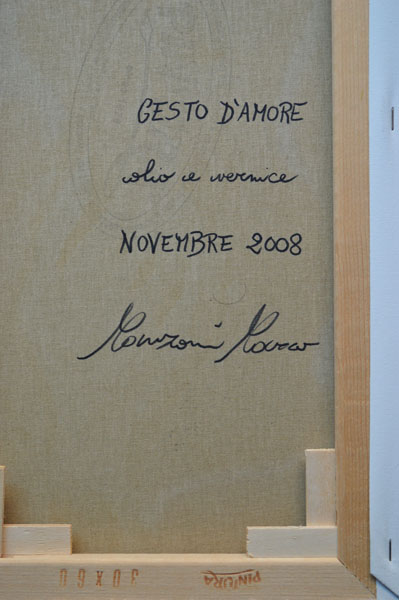 GESTO D'AMORE
olio e vernice
NOVEMBRE 2008
Manzoni Marco
30X60
PINTURA